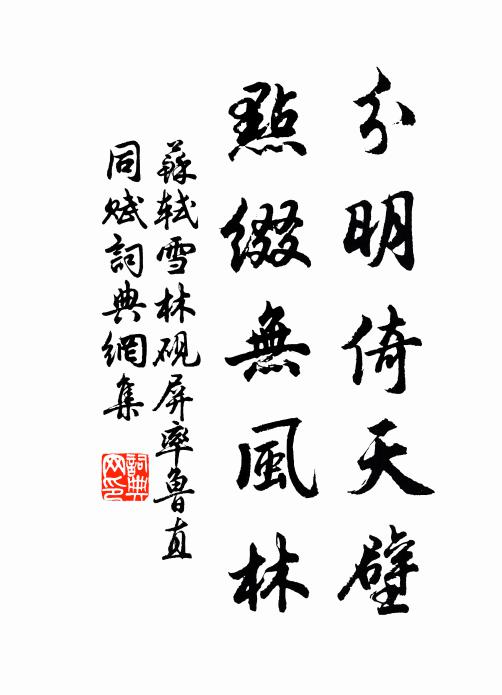 分明倚天壁
點綴無風林
蘇軾雪林硯屏率魯直
同賦詞典網集
詞典网印